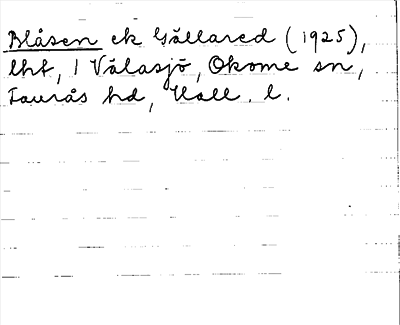 Blåsen ek Gällared (1925),
lht, 1 Välasjö, Okome sn,
Faurås hd, Hall. l.